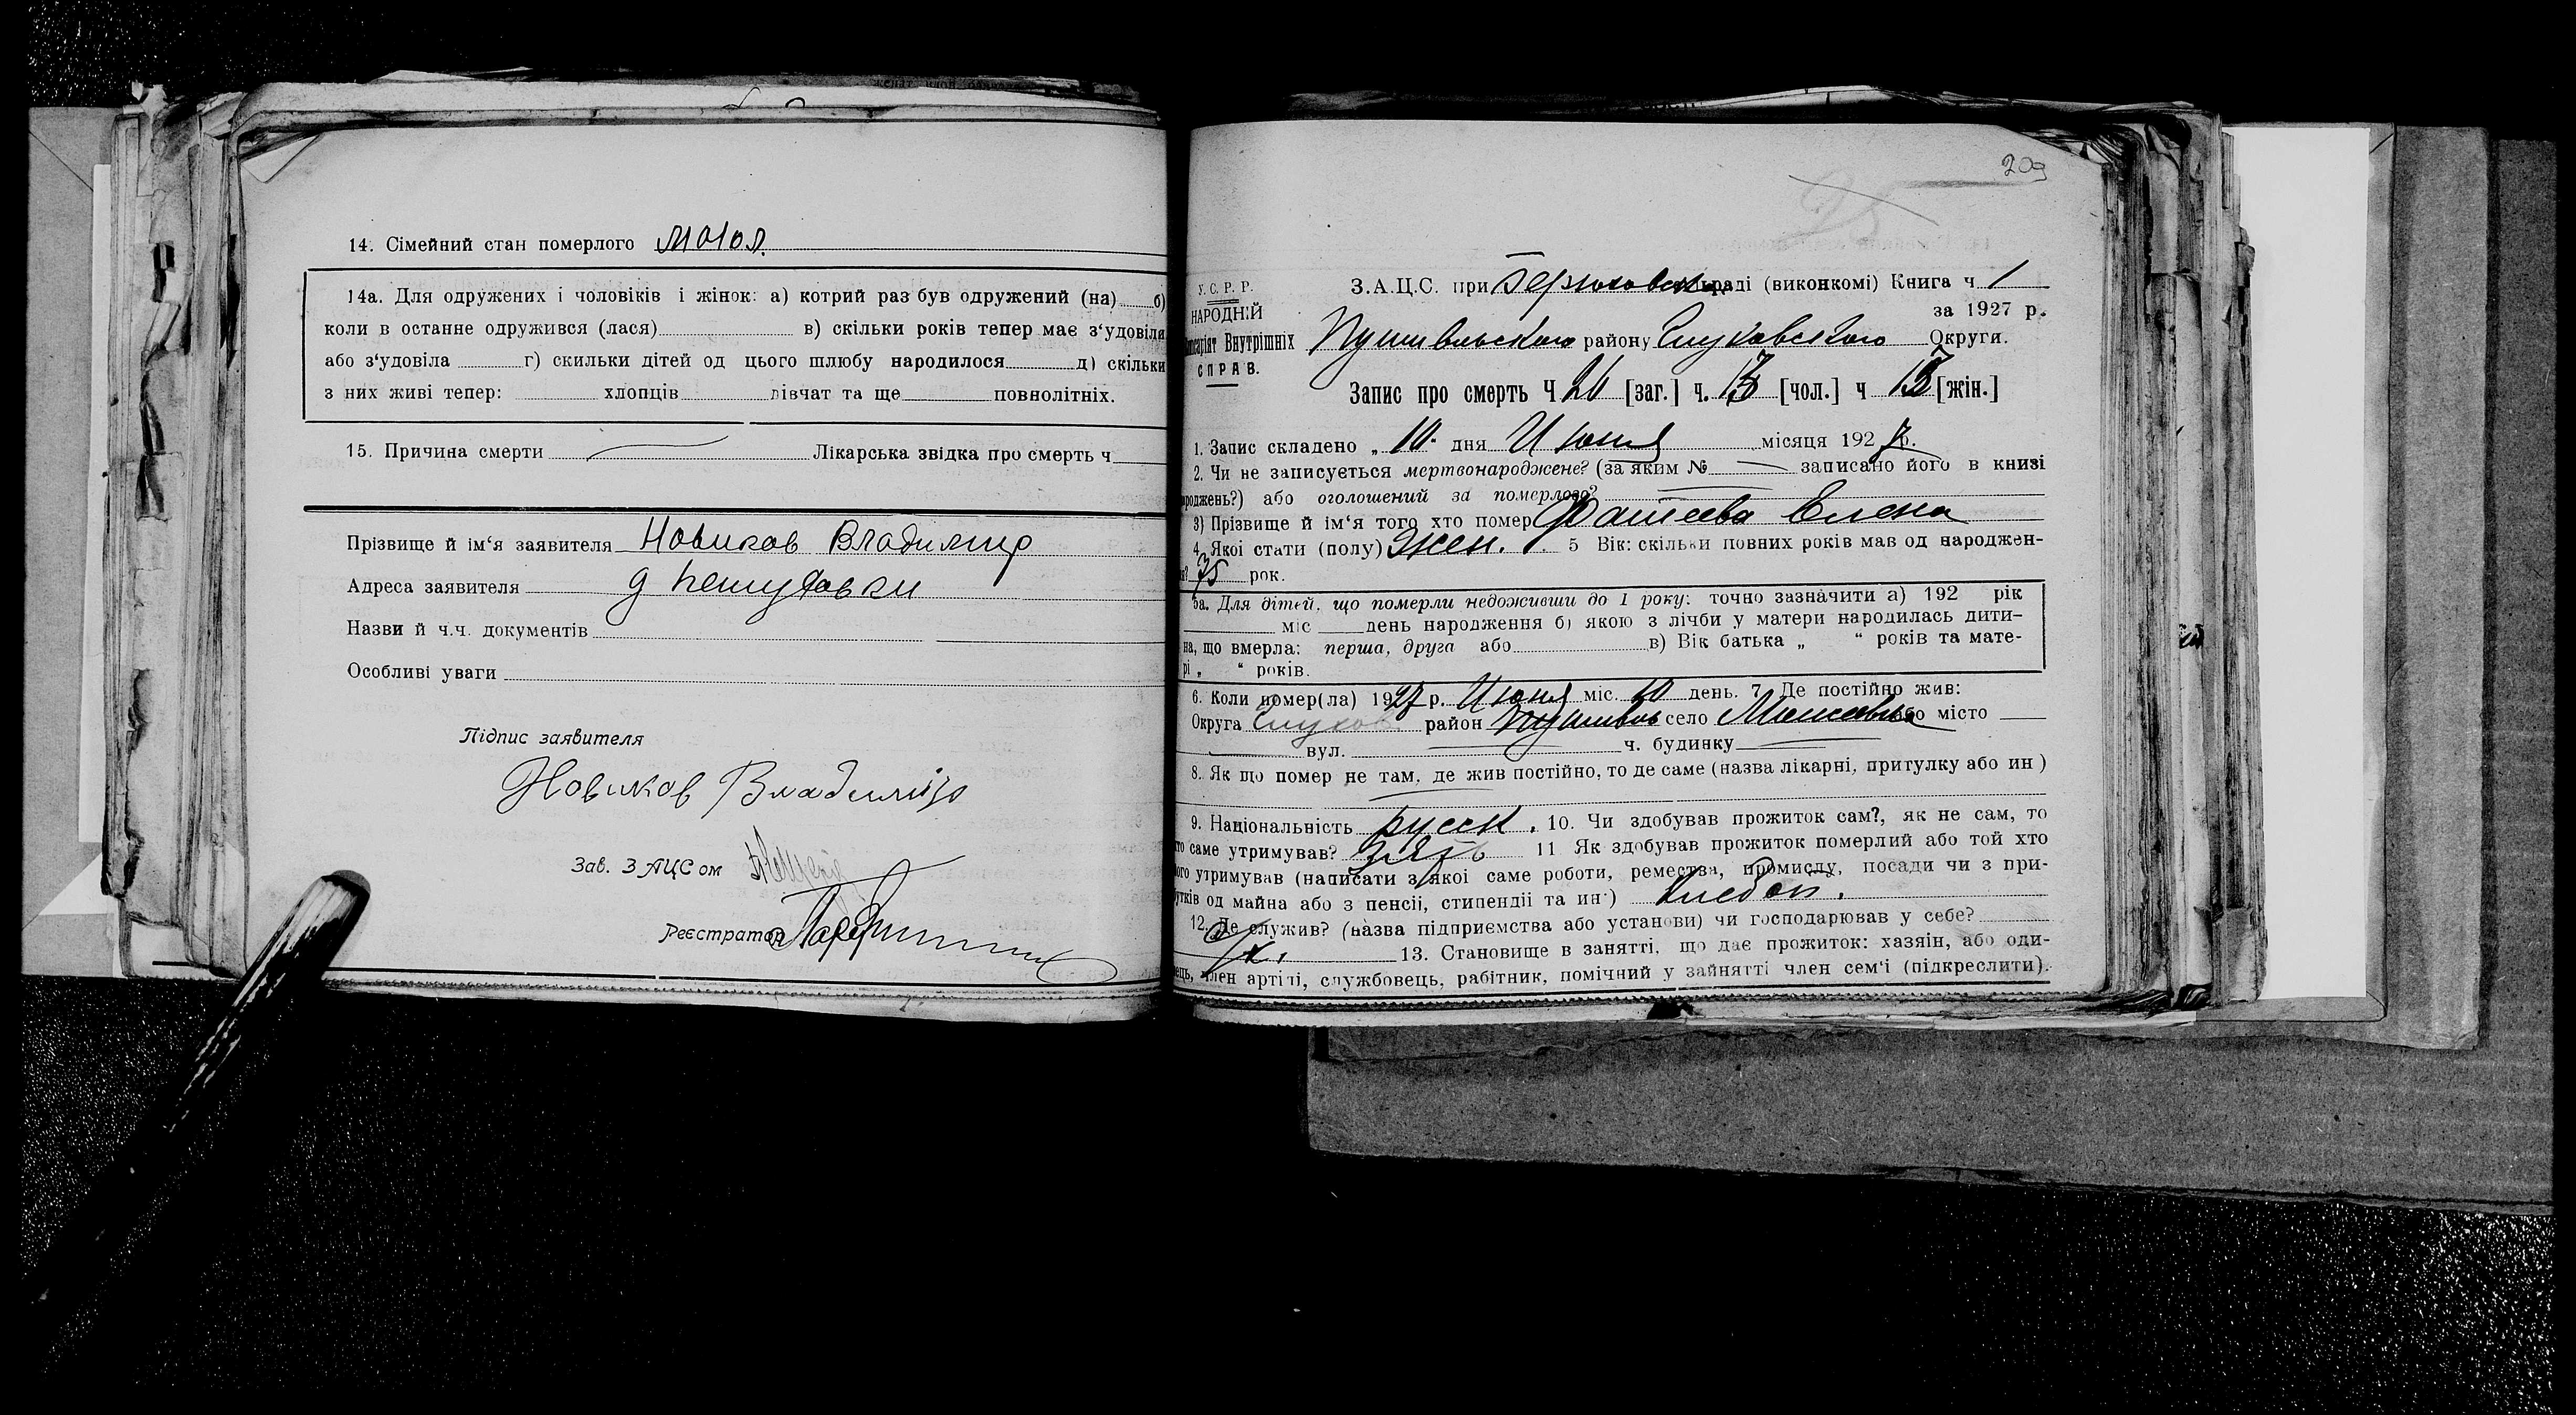 14. Сімейний стан померлого
14а. Для одружених і чоловіків і жінок: а) котрий раз був одружений (на) б)
коли в останне одружився (лася) в) скільки років тепер має з‘удовіля
або з‘удовіла г) скильки дітей од цього шлюбу народилося д) скільки
з них живі тепер: хлопців дівчат та ще повнолітніх.
15. Причина смерти Лікарська звідка про смерть ч
Прізвище й ім‘я заявителя Новиков Владимир
Адреса заявителя
Назви й ч.ч. документів
Особливі уваги
Підпис заявителя
Новиков Владимир
Зав. ЗАЦСом
Реєстратор
209
У. С. Р. Р.
НАРОДНІЙ
Внутрішніх
СПРАВ.
З.А.Ц.С. при раді (виконкомі) Книга ч 1
за 1927 р.
Путивльского району Глуховского Округи.
Запис про смерть Ч [заг.] ч. [чол.] ч [жін.]
1. Запис складено „ 10 дня Июня місяця 1927 р.
2. Чи не записується мертвонароджене? (за яким № записано його в книзі
роджень?) або оголошений за померлого?
3) Прізвище й ім‘я того хто помер Фатеева Елена
4. Якої стати (полу) Жен. 5 Вік: скільки повних років мав од народжен-
75 рок.
5а. Для дітей, що померли недоживши до 1 року: точно зазначити а) 192 рік
міс день народження б) якою з лічби у матери народилась дити-
на, що вмерла: перша, друга або в) Вік батька „ “ років та мате-
рі „ “ років.
6. Коли помер(ла) 1927 р. Июня міс. 10 день. 7. Де постійно жив:
Округа Глухов район Путивль село або місто
вул. ч. будинку
8. Як що помер не там, де жив постійно, то де саме (назва лікарні, притулку або ин )
9. Національність русск. 10. Чи здобував прожиток сам?, як не сам, то
то саме утримував? зять 11 Як здобував прожиток померлий або той хто
ого утримував (написати з якоі саме роботи, ремества, промислу, посади чи з при-
утків од майна або з пенсії, стипендії та ин·) хлебоп.
12. Де служив? (назва підприємства або установи) чи господарював у себе?
13. Становище в занятті, що дає прожиток: хазяін, або оди-
ець, член артілі, службовець, рабітник, помічний у зайнятті член сем‘і (підкреслити).